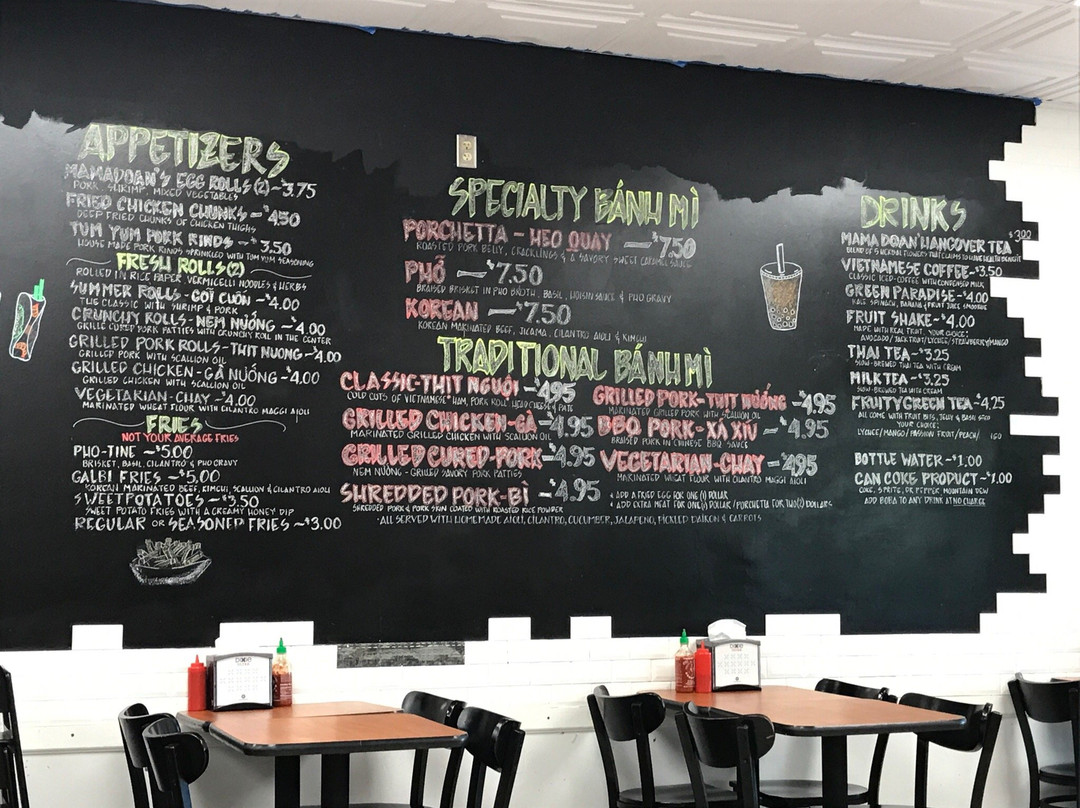 APPETIZERS
MAMADOAN'S EGG ROLLS (2) ~ $3.75
PORK, SHRIMP, MIXED VEGETABLES
FRIED CHICKEN CHUNKS ~ $4.50
DEEP FRIED CHUNKS OF CHICKEN THIGHS
TUM YUM PORK RINDS ~ $3.50
HOUSE MADE PORK RINDS SPRINKLED WITH TOM YUM SEASONING
FRESH ROLLS (2)
ROLLED IN RICE PAPER VERMICELLI NOODLES & HERBS
SUMMER ROLLS - GỎI CUỐN ~ $4.00
THE CLASSIC WITH SHRIMP & PORK
CRUNCHY ROLLS - NEM NƯỚNG ~ $4.00
GRILLED CURED PORK PATTIES WITH CRUNCHY ROLL IN THE CENTER
GRILLED PORK ROLLS - THIT NUONG ~ $4.00
GRILLED PORK WITH SCALLION OIL
GRILLED CHICKEN - GÀ NUỐNG ~ $4.00
GRILLED CHICKEN WITH SCALLION OIL
VEGETARIAN - CHAY ~ $4.00
MARINATED WHEAT FLOUR WITH CILANTRO MAGGI AIOLI
FRIES
NOT YOUR AVERAGE FRIES
PHO-TINE ~ $5.00
BRISKET, BASIL, CILANTRO & PHO GRAVY
GALBI FRIES ~ $5.00
KOREAN MARINATED BEEF, KIMCHI, SCALLION & CILANTRO AIOLI
SWEET POTATOES ~ $3.50
SWEET POTATO FRIES WITH A CREAMY HONEY DIP
REGULAR OR SEASONED FRIES ~ $3.00
SPECIALTY BÁNH MÌ
PORCHETTA - HEO QUAY — $7.50
ROASTED PORK BELLY, CRACKLINGS & A SAVORY SWEET CARAMEL SAUCE
PHỞ — $7.50
BRAISED BRISKET IN PHO BROTH, BASIL, HOISIN SAUCE & PHO GRAVY
KOREAN — $7.50
KOREAN MARINATED BEEF, JICAMA, CILANTRO AIOLI & KIMCHI
TRADITIONAL BÁNH MÌ
CLASSIC - THIT NGUỘI - $4.95
COLD CUTS OF VIETNAMESE HAM, PORK ROLL, HEAD CHEESE & PATE
GRILLED CHICKEN - GÀ - $4.95
MARINATED GRILLED CHICKEN WITH SCALLION OIL
GRILLED CURED PORK - $4.95
NEM NƯỚNG - GRILLED SAVORY PORK PATTIES
SHREDDED PORK - BÌ - $4.95
SHREDDED PORK & PORK SKIN COATED WITH ROASTED RICE POWDER
GRILLED PORK - THIT NƯỚNG - $4.95
MARINATED GRILLED PORK WITH SCALLION OIL
BBQ PORK - XÁ XÍU - $4.95
BRAISED PORK IN CHINESE BBQ SAUCE
VEGETARIAN - CHAY - $4.95
MARINATED WHEAT FLOUR WITH CILANTRO MAGGI AIOLI
* ADD A FRIED EGG FOR ONE (1) DOLLAR
* ADD EXTRA MEAT FOR ONE (1) DOLLAR / PORCHETTA FOR TWO (2) DOLLARS
* ALL SERVED WITH HOMEMADE AIOLI, CILANTRO, CUCUMBER, JALAPENO, PICKLED DAIKON & CARROTS
DRINKS
MAMA DOAN HANGOVER TEA $3.00
VIETNAMESE COFFEE - $3.50
CLASSIC ICED-COFFEE WITH CONDENSED MILK
GREEN PARADISE - $4.00
KALE, SPINACH, BANANA & FRUIT JUICE SMOOTHIE
FRUIT SHAKE - $4.00
MADE WITH REAL FRUIT, YOUR CHOICE:
AVOCADO/JACK FRUIT/LYCHEE/STRAWBERRY/MANGO
THAI TEA - $3.25
SLOW-BREWED THAI TEA WITH CREAM
MILK TEA - $3.25
SLOW-BREWED TEA WITH CREAM
FRUITY GREEN TEA - $4.25
ALL COME WITH FRUIT BITS, JELLY & BASIL SEED
YOUR CHOICE:
LYCHEE/MANGO/PASSION FRUIT/PEACH/
BOTTLE WATER - $1.00
CAN COKE PRODUCT - $1.00
COKE, SPRITE, DR PEPPER, MOUNTAIN DEW
ADD BOBA TO ANY DRINK AT NO CHARGE